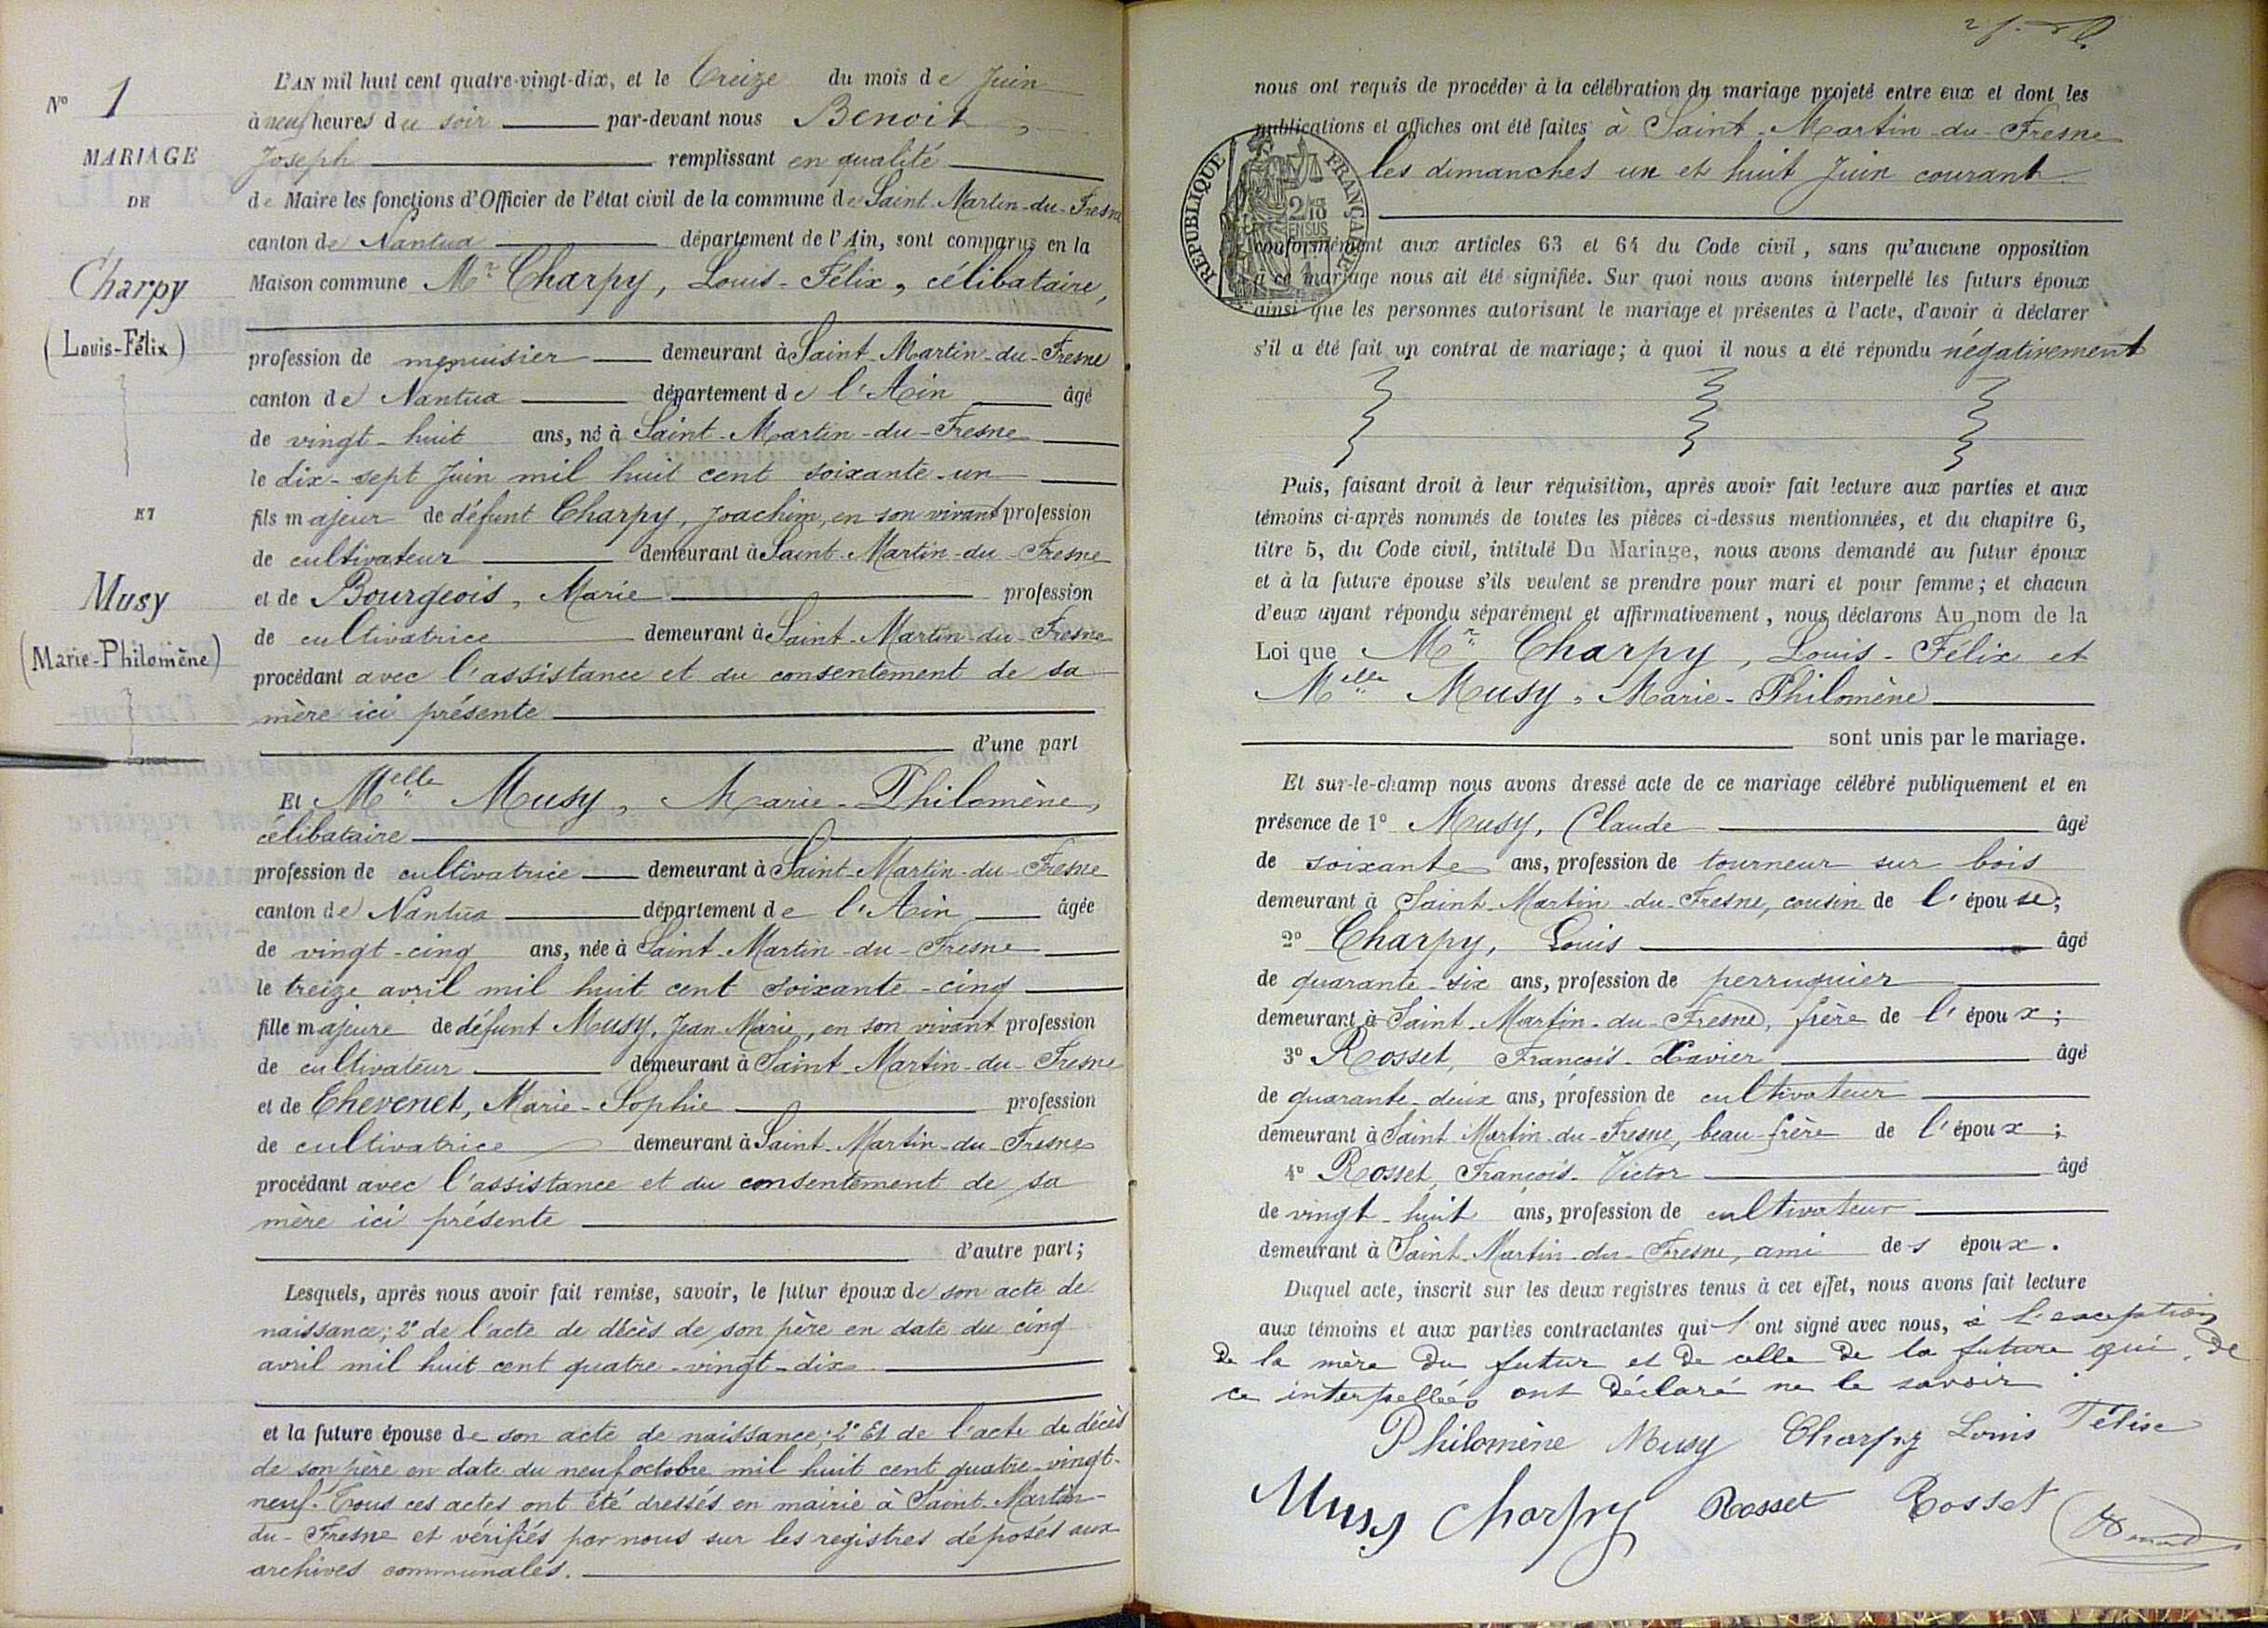 N° 1
MARIAGE
DE
Charpy
(Louis-Félix)
ET
Musy
(Marie-Philomène)
L'AN mil huit cent quatre-vingt-dix, et le treize du mois de Juin
à neuf heures du soir par-devant nous Benoit,
Joseph remplissant en qualité
de Maire les fonctions d'Officier de l'état civil de la commune de Saint-Martin-du-Fresne
canton de Nantua département de l'Ain, sont comparus en la
Maison commune Mr Charpy, Louis-Félix, célibataire,
profession de menuisier demeurant à Saint-Martin-du-Fresne
canton de Nantua département de l'Ain âgé
de vingt-huit ans, né à Saint-Martin-du-Fresne
le dix-sept Juin mil huit cent soixante-un
fils majeur de défunt Charpy, Joachim, en son vivant profession
de cultivateur demeurant à Saint-Martin-du-Fresne
et de Bourgeois, Marie profession
de cultivatrice demeurant à Saint-Martin-du-Fresne
procédant avec l'assistance et du consentement de sa
mère ici présente
d'une part
Et Melle Musy, Marie-Philomène,
célibataire
profession de cultivatrice demeurant à Saint-Martin-du-Fresne
canton de Nantua département de l'Ain âgée
de vingt-cinq ans, née à Saint-Martin-du-Fresne
le treize avril mil huit cent soixante-cinq
fille majeure de défunt Musy, Jean Marie, en son vivant profession
de cultivateur demeurant à Saint-Martin-du-Fresne
et de Thevenet, Marie-Sophie profession
de cultivatrice demeurant à Saint-Martin-du-Fresne
procédant avec l'assistance et du consentement de sa
mère ici présente
d'autre part;
Lesquels, après nous avoir fait remise, savoir, le futur époux de son acte de
naissance; 2° de l'acte de décès de son père en date du cinq
avril mil huit cent quatre-vingt-dix
et la future épouse de son acte de naissance; 2° Et de l'acte de décès
de son père en date du neuf octobre mil huit cent quatre-vingt-
neuf. Tous ces actes ont été dressés en mairie à Saint-Martin-
du-Fresne et vérifiés par nous sur les registres déposés aux
archives communales.
nous ont requis de procéder à la célébration du mariage projeté entre eux et dont les
publications et affiches ont été faites à Saint-Martin-du-Fresne
les dimanches un et huit Juin courant
RÉPUBLIQUE FRANÇAISE
conformément aux articles 63 et 64 du Code civil, sans qu'aucune opposition
à ce mariage nous ait été signifiée. Sur quoi nous avons interpellé les futurs époux
ainsi que les personnes autorisant le mariage et présentes à l'acte, d'avoir à déclarer
s'il a été fait un contrat de mariage; à quoi il nous a été répondu négativement
Puis, faisant droit à leur réquisition, après avoir fait lecture aux parties et aux
témoins ci-après nommés de toutes les pièces ci-dessus mentionnées, et du chapitre 6,
titre 5, du Code civil, intitulé Du Mariage, nous avons demandé au futur époux
et à la future épouse s'ils veulent se prendre pour mari et pour femme; et chacun
d'eux ayant répondu séparément et affirmativement, nous déclarons Au nom de la
Loi que Mr Charpy, Louis-Félix et
Melle Musy, Marie-Philomène
sont unis par le mariage.
Et sur-le-champ nous avons dressé acte de ce mariage célébré publiquement et en
présence de 1° Musy, Claude âgé
de soixante ans, profession de tourneur sur bois
demeurant à Saint-Martin-du-Fresne, cousin de l'épouse;
2° Charpy, Louis âgé
de quarante-six ans, profession de perruquier
demeurant à Saint-Martin-du-Fresne, frère de l'époux;
3° Rosset, François-Xavier âgé
de quarante-deux ans, profession de cultivateur
demeurant à Saint-Martin-du-Fresne, beau-frère de l'époux;
4° Rosset, François-Victor âgé
de vingt-huit ans, profession de cultivateur
demeurant à Saint-Martin-du-Fresne, ami des époux.
Duquel acte, inscrit sur les deux registres tenus à cet effet, nous avons fait lecture
aux témoins et aux parties contractantes qui l'ont signé avec nous, à l'exception
de la mère du futur et de celle de la future qui, de
ce interpellées ont déclaré ne le savoir.
Philomène Musy Charpy Louis Félise
Musy Charpy Rosset Rosset